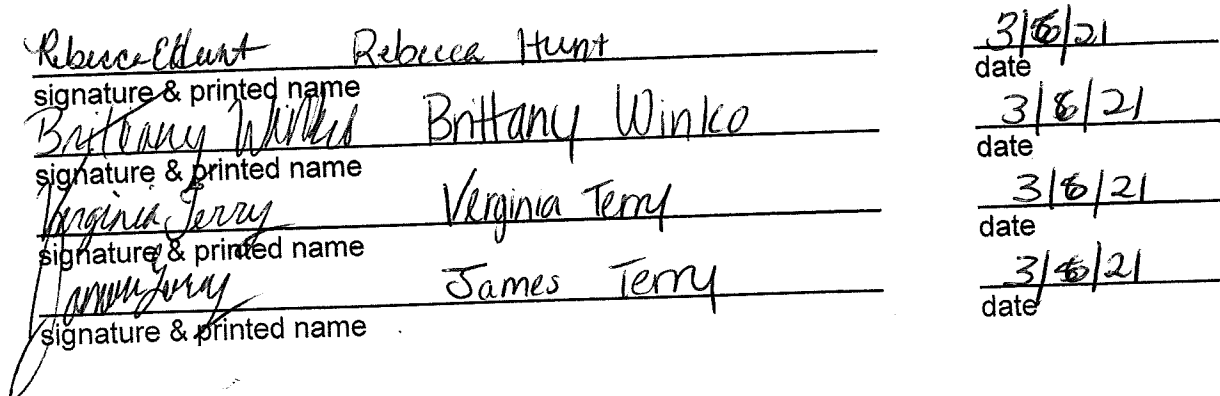 Rebecca E Hunt Rebecca Hunt 3/6/21
signature & printed name date
Brittany Winko Brittany Winko 3/8/21
signature & printed name date
Verginia Terry Verginia Terry 3/6/21
signature & printed name date
James Terry James Terry 3/6/21
signature & printed name date